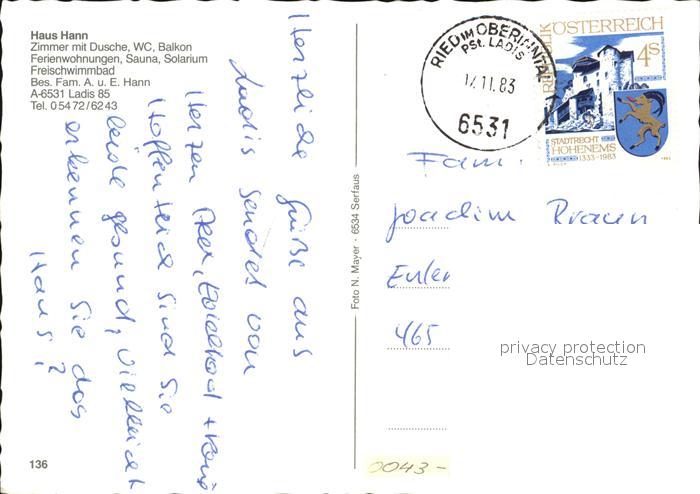 Haus Hann
Zimmer mit Dusche, WC, Balkon
Ferienwohnungen, Sauna, Solarium
Freischwimmbad
Bes. Fam. A. u. E. Hann
A-6531 Ladis 85
Tel. 0 54 72 / 62 43
Herzliche Grüße aus
Ladis sendet von
Herzen
Hoffentlich sind Sie
beide gesund, vielleicht
erkennen Sie das
Haus?
136
Foto N. Mayer · 6534 Serfaus
RIED IM OBERINNTAL
PSt. LADIS
14.11.83
6531
REPUBLIK ÖSTERREICH
4S
STADTRECHT
HOHENEMS
1333-1983
Fam.
Joachim Braun
Euler
465
privacy protection
Datenschutz
0043-